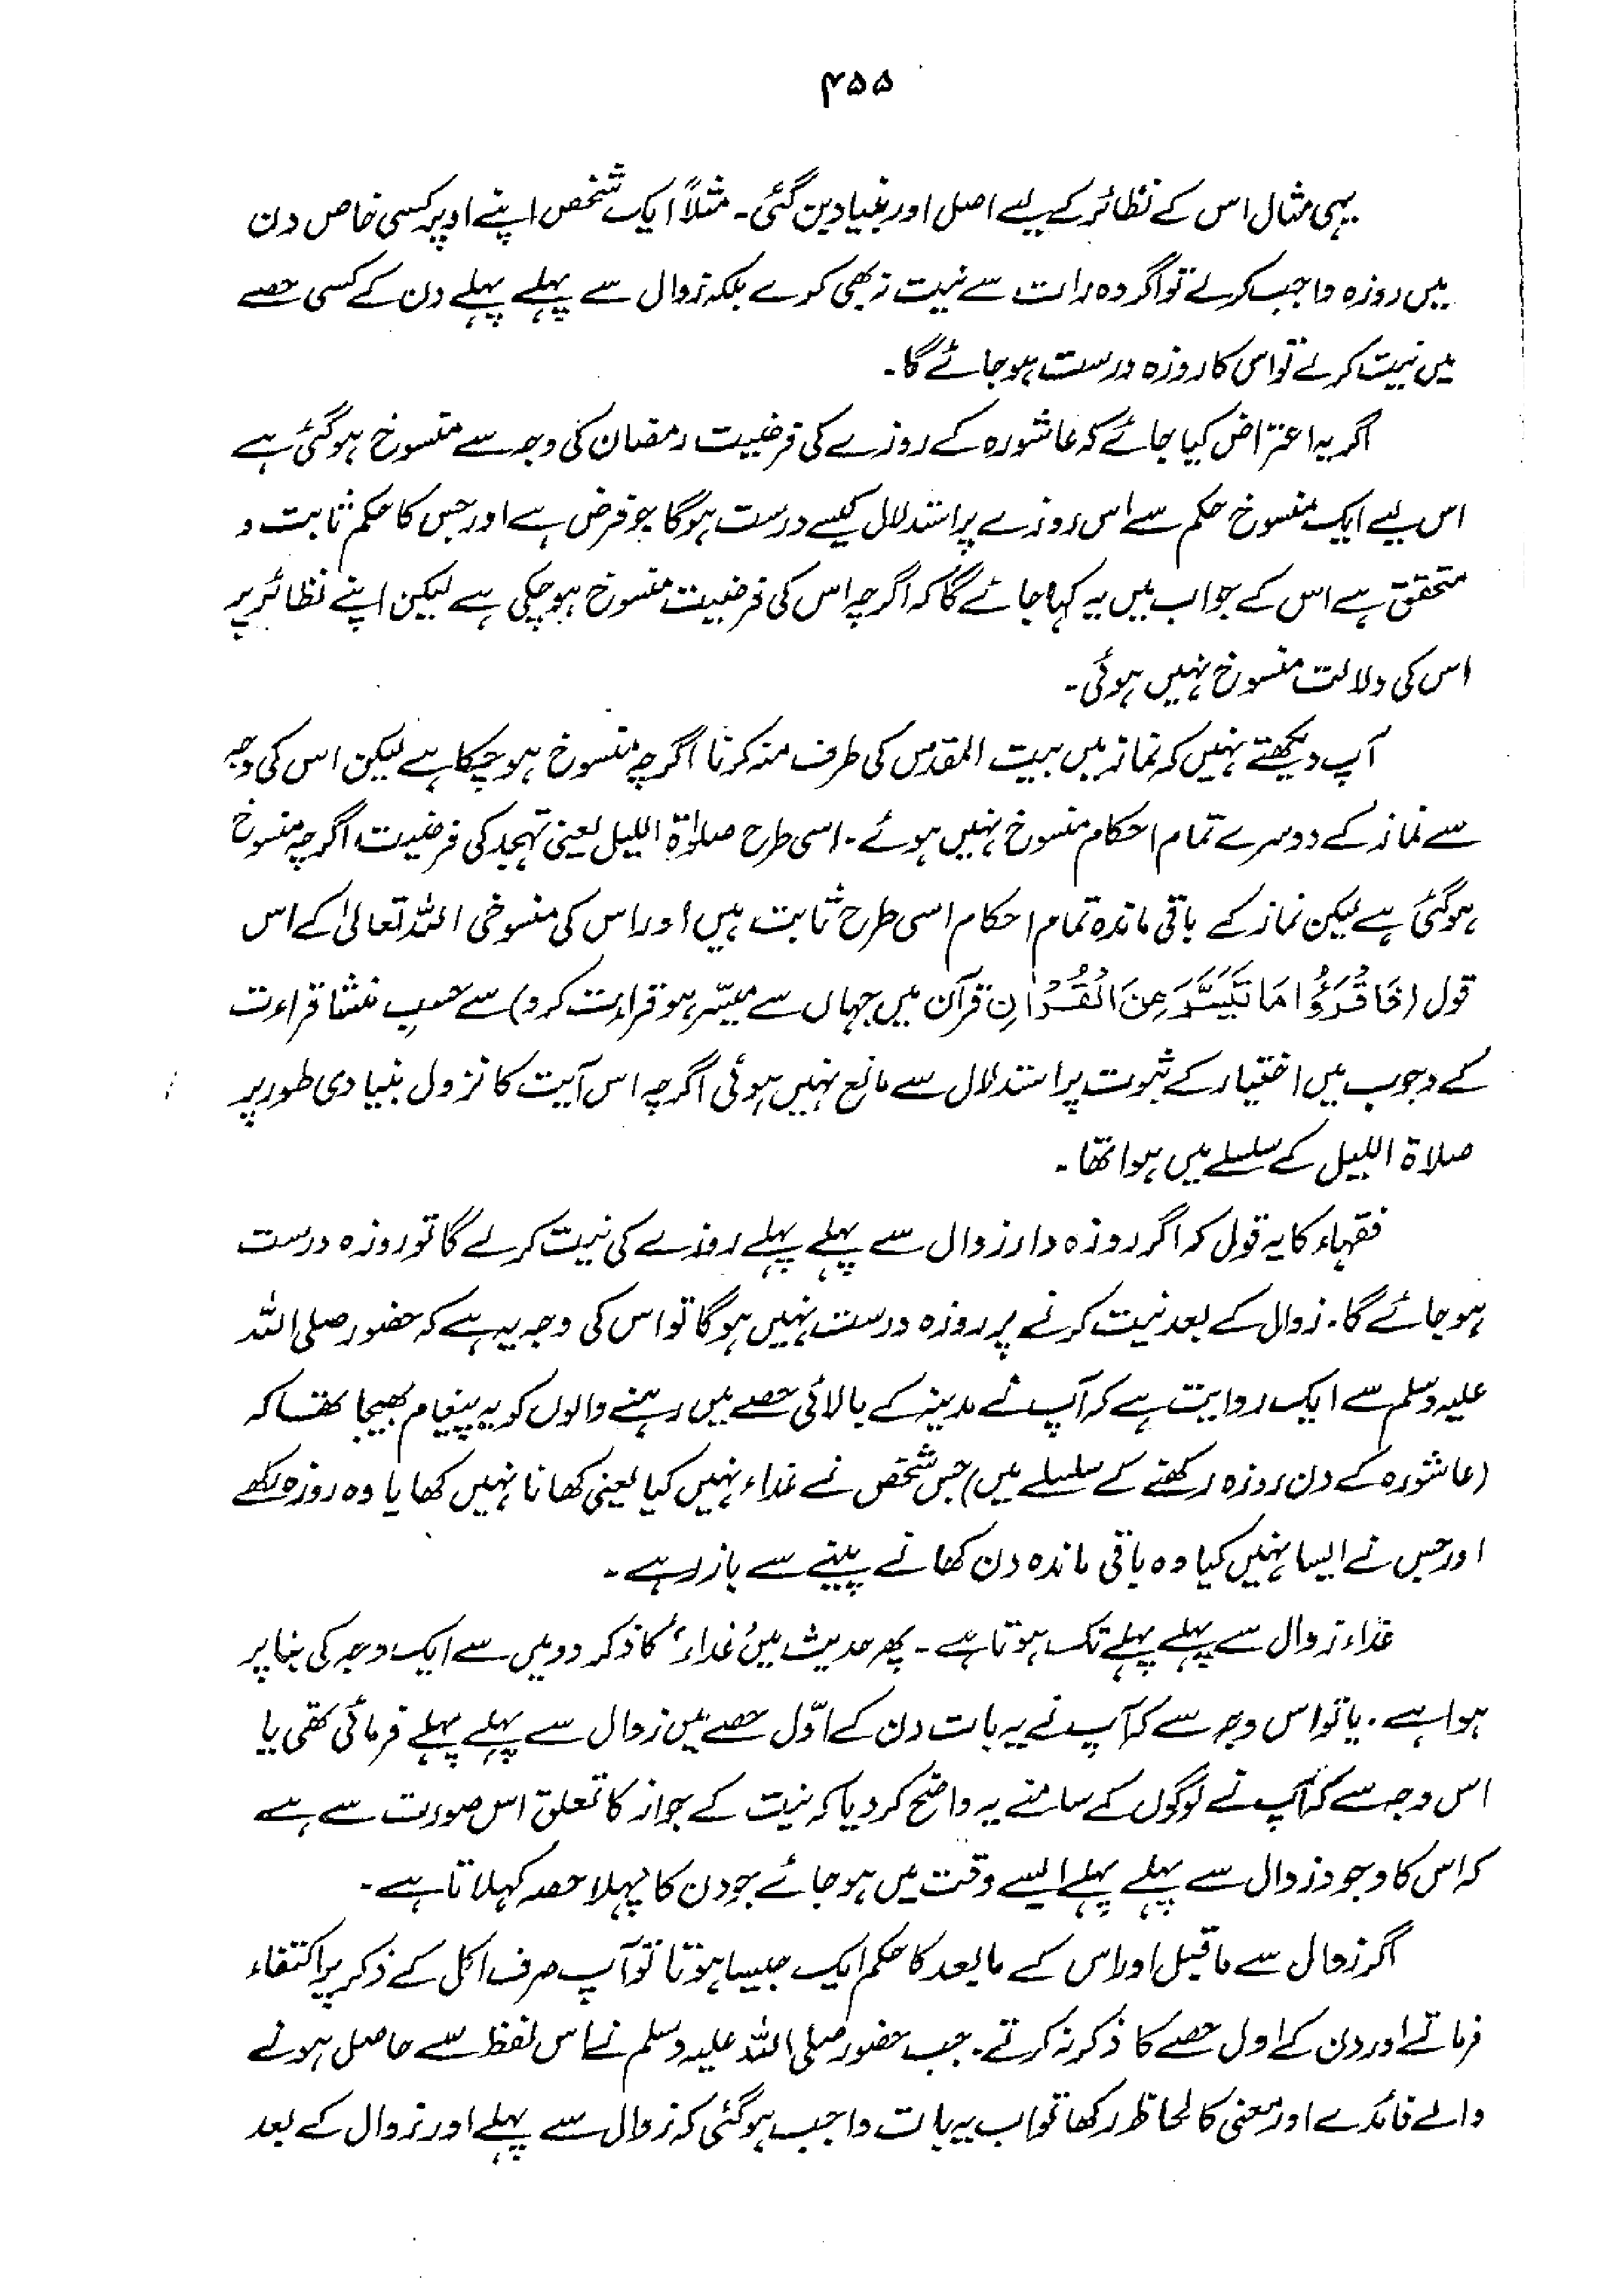 ۴۵۵
یہی مثال اس کے نظائر کے لیے اصل اور بنیاد بن گئی۔ مثلاً ایک شخص اپنے اوپر کسی خاص دن
میں روزہ واجب کرلے تو اگر وہ رات سے نیت نہ بھی کرے بلکہ زوال سے پہلے پہلے دن کے کسی حصے
میں نیت کرلے تو اس کا روزہ درست ہوجائے گا۔
اگر یہ اعتراض کیا جائے کہ عاشورہ کے روزے کی فرضیت رمضان کی وجہ سے منسوخ ہوگئی ہے
اس لیے ایک منسوخ حکم سے اس روزے پر استدلال کیسے درست ہوگا جو فرض ہے اور جس کا حکم ثابت و
متحقق ہے اس کے جواب میں یہ کہا جائے گا کہ اگرچہ اس کی فرضیت منسوخ ہوچکی ہے لیکن اپنے نظائر پر
اس کی دلالت منسوخ نہیں ہوئی۔
آپ دیکھتے نہیں کہ نماز میں بیت المقدس کی طرف منہ کرنا اگرچہ منسوخ ہوچکا ہے لیکن اس کی وجہ
سے نماز کے دوسرے تمام احکام منسوخ نہیں ہوئے۔ اسی طرح صلوٰۃ اللیل یعنی تہجد کی فرضیت اگرچہ منسوخ
ہوگئی ہے لیکن نماز کے باقی ماندہ تمام احکام اسی طرح ثابت ہیں اور اس کی منسوخی اللہ تعالیٰ کے اس
قول (فَاقْرَءُوْا مَا تَيَسَّرَ مِنَ الْقُرْاٰنِ قرآن میں جہاں سے میسّر ہو قراءت کرو) سے حسبِ منشا قراءت
کے وجوب میں اختیار کے ثبوت پر استدلال سے مانع نہیں ہوئی اگرچہ اس آیت کا نزول بنیادی طور پر
صلاۃ اللیل کے سلسلے میں ہوا تھا۔
فقہاء کا یہ قول کہ اگر روزہ دار زوال سے پہلے پہلے روزے کی نیت کرلے گا تو روزہ درست
ہوجائے گا۔ زوال کے بعد نیت کرنے پر روزہ درست نہیں ہوگا تو اس کی وجہ یہ ہے کہ حضور صلی اللہ
علیہ وسلم سے ایک روایت ہے کہ آپ نے مدینہ کے بالائی حصے میں رہنے والوں کو یہ پیغام بھیجا تھا کہ
(عاشورہ کے دن روزہ رکھنے کے سلسلے میں) جس شخص نے غداء نہیں کیا یعنی کھانا نہیں کھایا وہ روزہ رکھے
اور جس نے ایسا نہیں کیا وہ باقی ماندہ دن کھانے پینے سے باز رہے۔
غداء زوال سے پہلے پہلے تک ہوتا ہے۔ پھر حدیث میں ‘غداء’ کا ذکر دو میں سے ایک وجہ کی بنا پر
ہوا ہے۔ یا تو اس وجہ سے کہ آپ نے یہ بات دن کے اوّل حصے میں زوال سے پہلے پہلے فرمائی تھی یا
اس وجہ سے کہ آپ نے لوگوں کے سامنے یہ واضح کردیا کہ نیت کے جواز کا تعلق اس صورت سے ہے
کہ اس کا وجود زوال سے پہلے پہلے ایسے وقت میں ہوجائے جو دن کا پہلا حصہ کہلاتا ہے۔
اگر زوال سے ماقبل اور اس کے مابعد کا حکم ایک جیسا ہوتا تو آپ صرف اکل کے ذکر پر اکتفاء
فرماتے اور دن کے اول حصے کا ذکر نہ کرتے۔ جب حضور صلی اللہ علیہ وسلم نے اس لفظ سے حاصل ہونے
والے فائدے اور معنی کا لحاظ رکھا تو اب یہ بات واجب ہوگئی کہ زوال سے پہلے اور زوال کے بعد